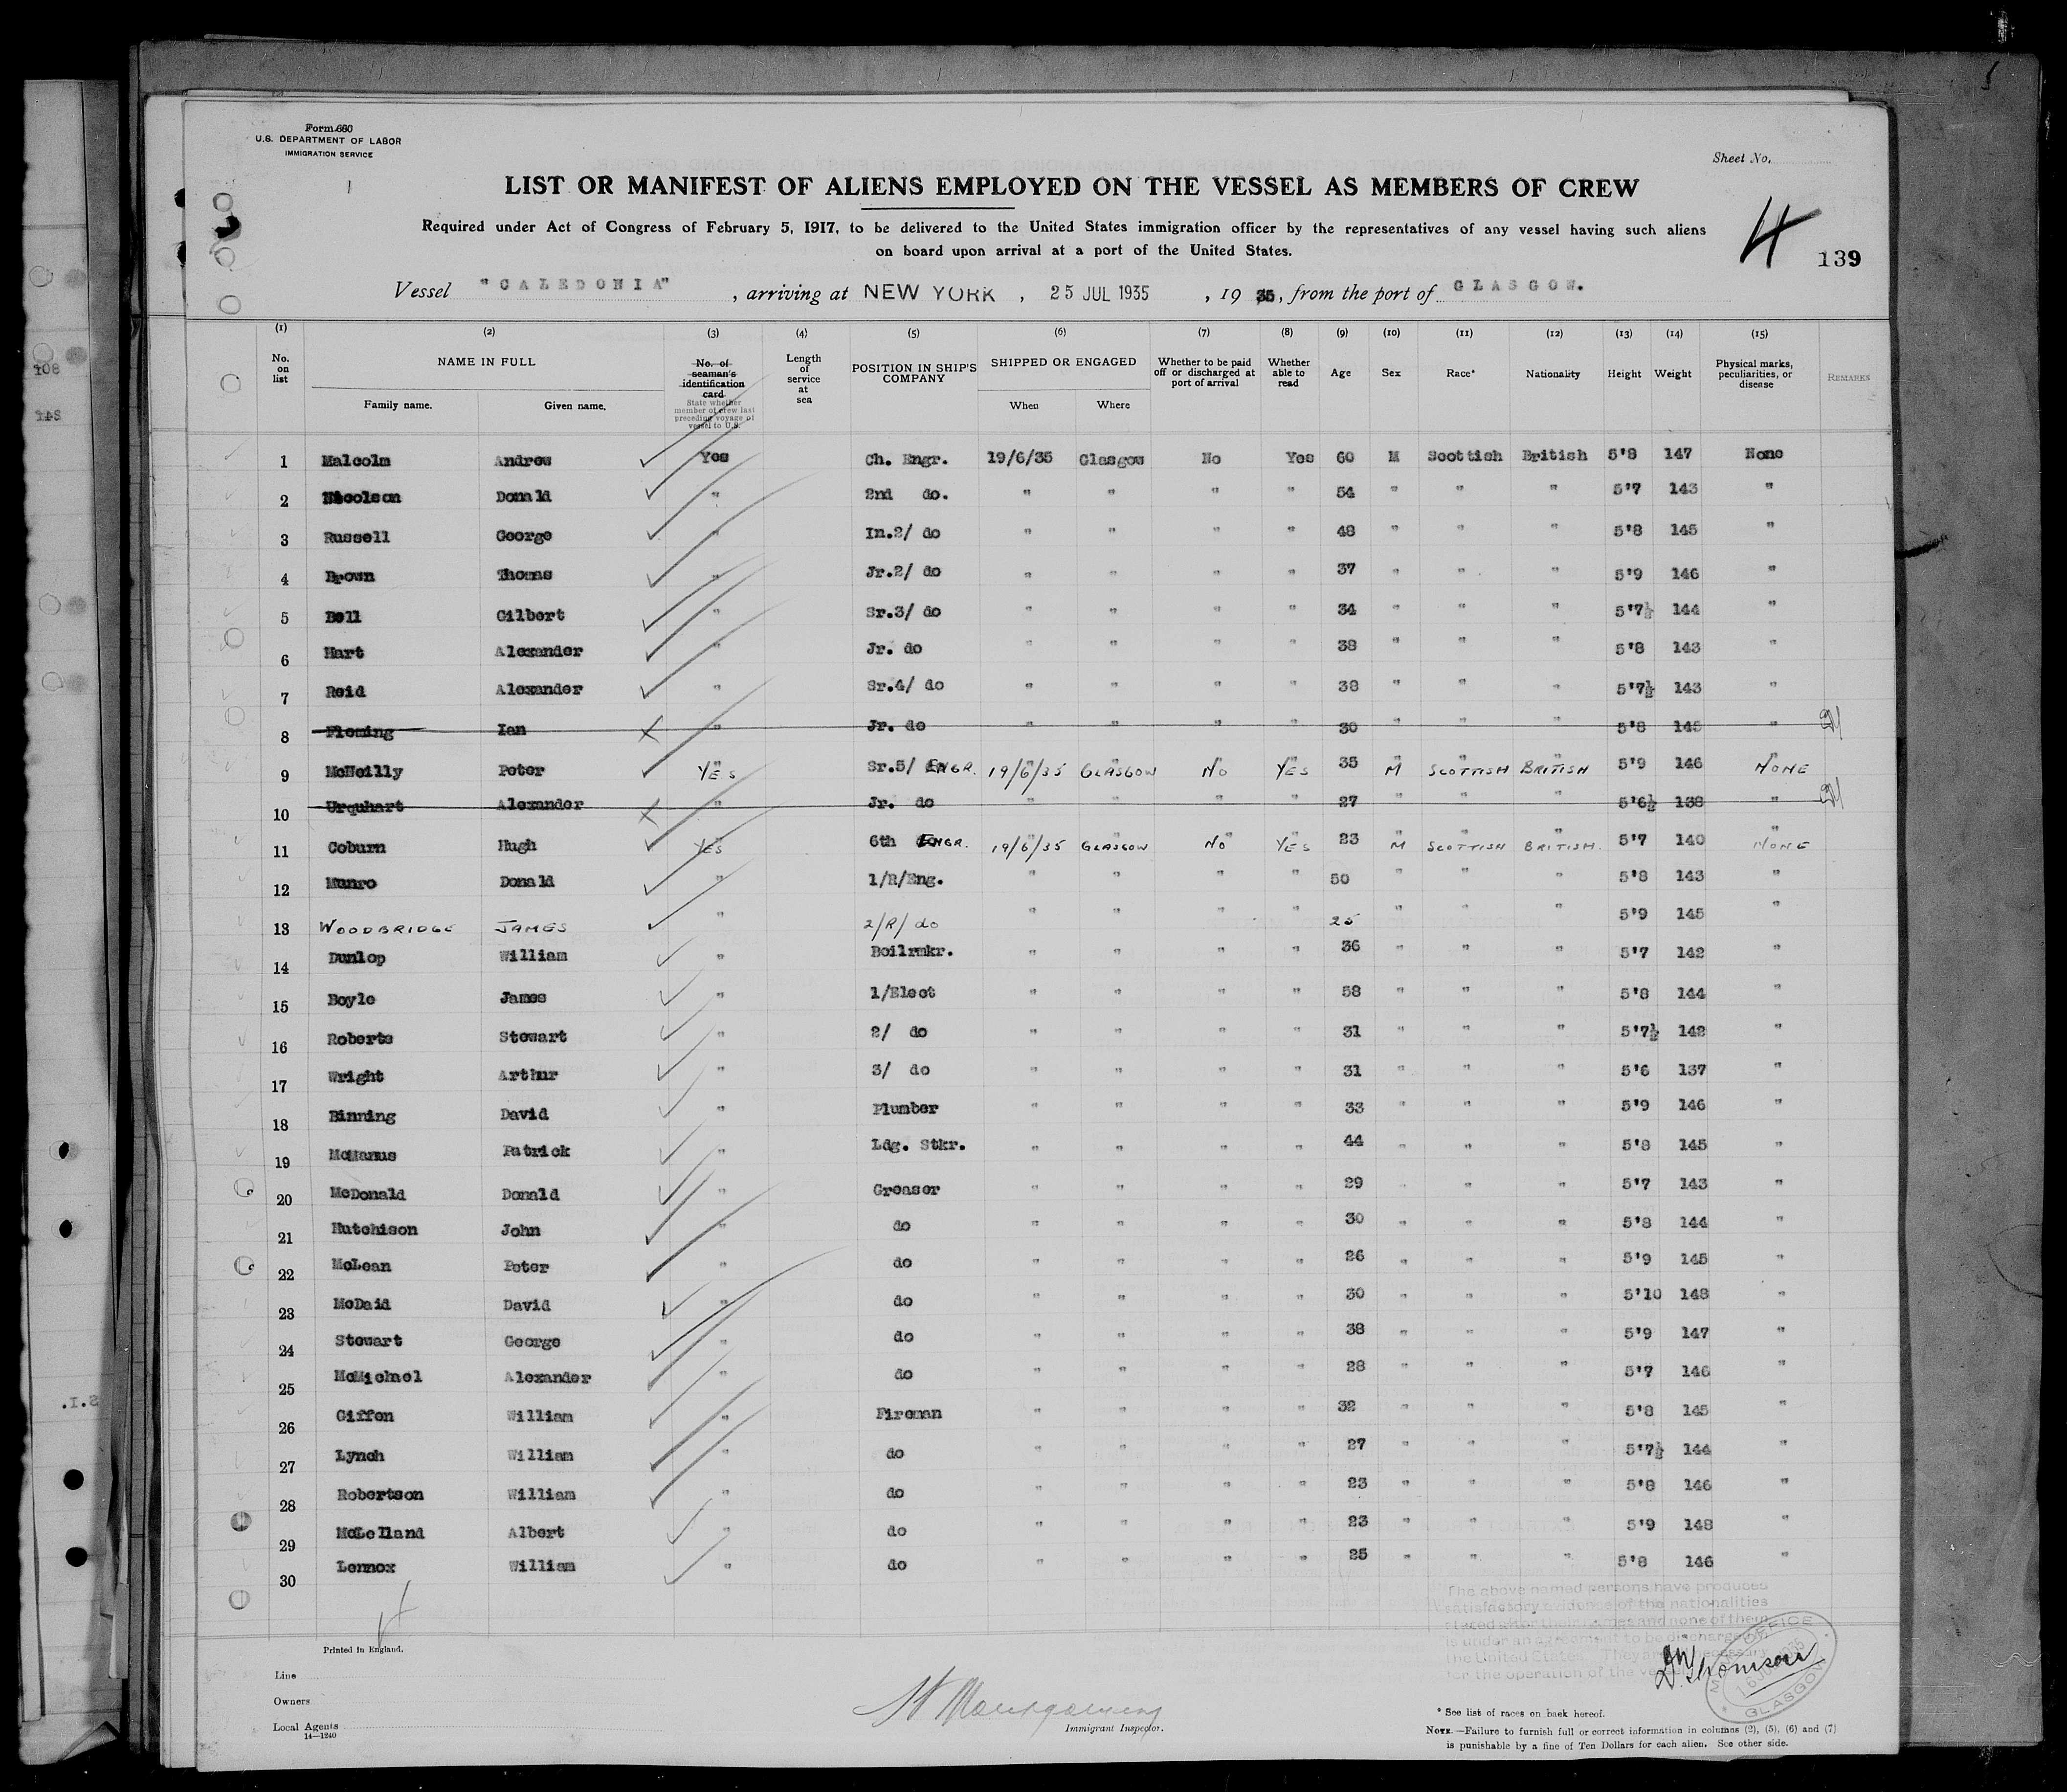 Form 680
U.S. DEPARTMENT OF LABOR
IMMIGRATION SERVICE
Sheet No.
LIST OR MANIFEST OF ALIENS EMPLOYED ON THE VESSEL AS MEMBERS OF CREW
Required under Act of Congress of February 5, 1917, to be delivered to the United States immigration officer by the representatives of any vessel having such aliens
on board upon arrival at a port of the United States.
4
139
Vessel "CALEDONIA", arriving at NEW YORK, 25 JUL 1935, 19 35, from the port of GLASGOW.
(1) (2) (3) (4) (5) (6) (7) (8) (9) (10) (11) (12) (13) (14) (15)
No. on list NAME IN FULL Family name. Given name. No. of seaman's identification card State whether member of crew last preceding voyage of vessel to U.S. Length of service at sea POSITION IN SHIP'S COMPANY SHIPPED OR ENGAGED When Where Whether to be paid off or discharged at port of arrival Whether able to read Age Sex Race* Nationality Height Weight Physical marks, peculiarities, or disease REMARKS
1 Malcolm Andrew Yes Ch. Engr. 19/6/35 Glasgow No Yes 60 M Scottish British 5'8 147 None
2 Nicolson Donald " 2nd do. " " " " 54 " " " 5'7 143 "
3 Russell George " In.2/ do " " " " 48 " " " 5'8 145 "
4 Brown Thomas " Jr.2/ do " " " " 37 " " " 5'9 146 "
5 Bell Gilbert " Sr.3/ do " " " " 34 " " " 5'7½ 144 "
6 Hart Alexander " Jr. do " " " " 38 " " " 5'8 143 "
7 Reid Alexander " Sr.4/ do " " " " 38 " " " 5'7½ 143 "
8 Fleming Ian " Jr. do " " " " 30 " " " 5'8 145 "
9 McNeilly Peter YES Sr.5/ ENGR. 19/6/35 GLASGOW NO YES 35 M SCOTTISH BRITISH 5'9 146 NONE
10 Urquhart Alexander " Jr. do " " " " 27 " " " 5'6½ 138 "
11 Coburn Hugh YES 6th ENGR. 19/6/35 GLASGOW NO YES 23 M SCOTTISH BRITISH. 5'7 140 NONE
12 Munro Donald " 1/R/Eng. " " " " 50 " " " 5'8 143 "
13 WOODBRIDGE JAMES " 2/R/ do " " " " 25 " " " 5'9 145 "
14 Dunlop William " Boilrmkr. " " " " 36 " " " 5'7 142 "
15 Boyle James " 1/Elect " " " " 58 " " " 5'8 144 "
16 Roberts Stewart " 2/ do " " " " 31 " " " 5'7½ 142 "
17 Wright Arthur " 3/ do " " " " 31 " " " 5'6 137 "
18 Binning David " Plumber " " " " 33 " " " 5'9 146 "
19 McManus Patrick " Ldg. Stkr. " " " " 44 " " " 5'8 145 "
20 McDonald Donald " Greaser " " " " 29 " " " 5'7 143 "
21 Hutchison John " do " " " " 30 " " " 5'8 144 "
22 McLean Peter " do " " " " 26 " " " 5'9 145 "
23 McDaid David " do " " " " 30 " " " 5'10 148 "
24 Stewart George " do " " " " 38 " " " 5'9 147 "
25 McMichael Alexander " do " " " " 28 " " " 5'7 146 "
26 Giffen William " Fireman " " " " 32 " " " 5'8 145 "
27 Lynch William " do " " " " 27 " " " 5'7½ 144 "
28 Robertson William " do " " " " 23 " " " 5'8 146 "
29 McLelland Albert " do " " " " 23 " " " 5'9 148 "
30 Lennox William " do " " " " 25 " " " 5'8 146 "
The above named persons have produced
satisfactory evidence of the nationalities
stated after their names and none of them
is under an agreement to be discharged in
the United States. They are necessary
for the operation of the vessel
OFFICE GLASGOW
D. Thomson
Printed in England.
Line
Owners
Local Agents
14—1240
Montgomery
Immigrant Inspector.
* See list of races on back hereof.
NOTE.—Failure to furnish full or correct information in columns (2), (5), (6) and (7)
is punishable by a fine of Ten Dollars for each alien. See other side.
108
143
S.I.